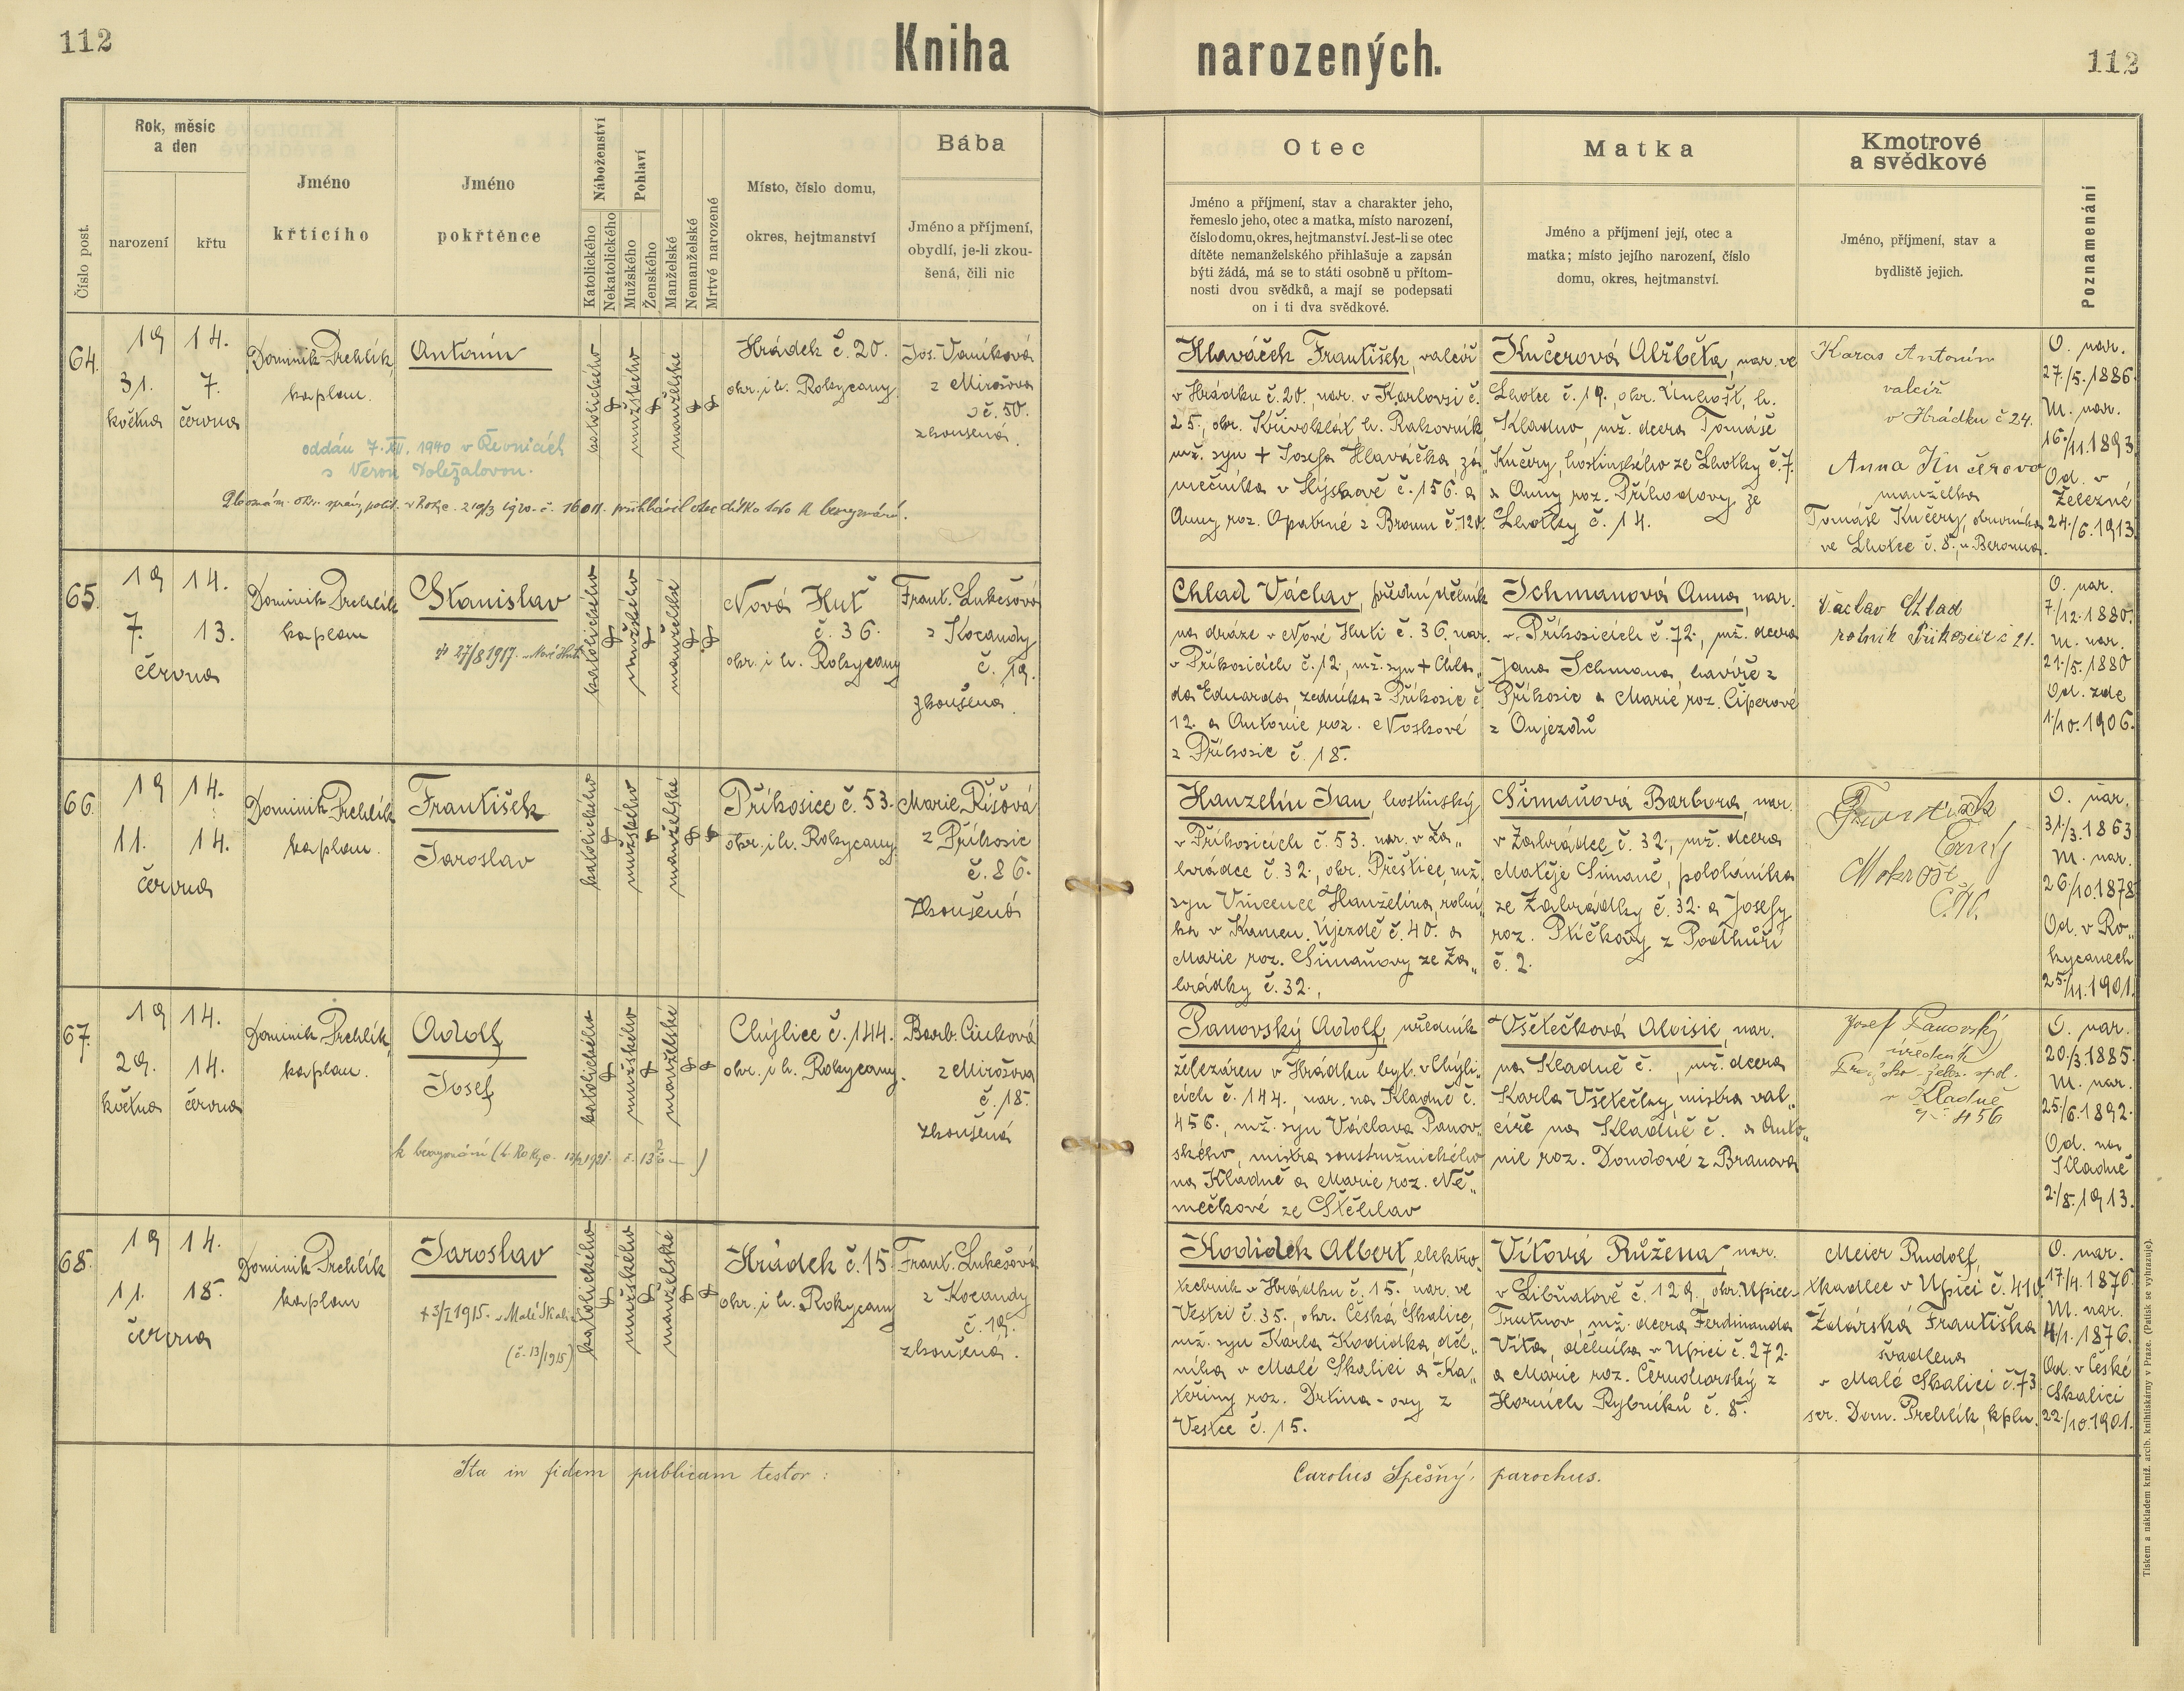 112
Kniha narozených.
112
Číslo post.
Rok, měsíc
a den
narození
křtu
Jméno
křtícího
Jméno
pokřtěnce
Náboženství
Katolického
Nekatolického
Pohlaví
Mužského
Ženského
Manželské
Nemanželské
Mrtvé narozené
Místo, číslo domu,
okres, hejtmanství
Bába
Jméno a příjmení,
obydlí, je-li zkou-
šená, čili nic
Otec
Jméno a příjmení, stav a charakter jeho,
řemeslo jeho, otec a matka, místo narození,
číslo domu, okres, hejtmanství. Jest-li se otec
dítěte nemanželského přihlašuje a zapsán
býti žádá, má se to státi osobně u přítom-
nosti dvou svědků, a mají se podepsati
on i ti dva svědkové.
Matka
Jméno a příjmení její, otec a
matka; místo jejího narození, číslo
domu, okres, hejtmanství.
Kmotrové
a svědkové
Jméno, příjmení, stav a
bydliště jejich.
Poznamenání
64.
19 14.
31. 7.
května června
Dominik Prehlík,
kaplan.
Antonín
katolického
mužského
manželské
Hrádek č. 20.
okr. i h. Rokycany
Jos. Vaníková
z Mirošova
č. 50.
zkoušená.
oddán 7. XII. 1940 v Řevnicích
s Veron. Doležalovou.
Hlaváček František, valcíř
v Hrádku č. 20., nar. v Karlovsi č.
25., okr. Křivoklát, h. Rakovník,
mž. syn + Josefa Hlaváčka, zá„
mečníka v Hýskově č. 156. a
Anny roz. Opatrné z Broum č. 120.
Kučerová Alžběta, nar. ve
Lhotce č. 19., okr. Unhošť, h.
Kladno, mž. dcera Tomáše
Kučery, hostinského ze Lhotky č. 7.
a Anny roz. Příhodovy ze
Lhotky č. 14.
Karas Antonín
valcíř
v Hrádku č 24.
Anna Kučerova
manželka
Tomáše Kučery, obuvníka
ve Lhotce č. 8., u Berouna.
O. nar.
27./5. 1886.
M. nar.
16./11. 1893.
Od. v
Železné
24./6. 1913.
65.
19 14.
7. 13.
června
Dominik Prehlík
kaplan
Stanislav
27/8 1917. Nové Huti
katolického
mužského
manželské
Nová Huť
č. 36.
okr. i h. Rokycany
Frant. Lukešová
z Kocandy
č. 19.
zkoušená.
Chlad Václav, přední dělník
na dráze v Nové Huti č. 36, nar.
v Příkosicích č. 12., mž. syn + Chla„
da Eduarda, zedníka z Příkosic č.
12. a Antonie roz. Noskové
z Příkosic č. 18.
Ichmanová Anna, nar.
v Příkosicích č. 72., mž. dcera
Jana Ichmana, havíře z
Příkosic a Marie roz. Ciperové
z Oujezdů
Václav Chlad
rolnik Přikosice č 21.
O. nar.
7./12. 1880.
M. nar.
21./5. 1880
Od. zde
1./10. 1906.
66.
19 14.
11. 14.
června
Dominik Prehlík
kaplan.
František
Jaroslav
katolického
mužského
manželské
Příkosice č. 53.
okr. i h. Rokycany
Marie Ríšová
z Příkosic
č. 86.
zkoušená
Hanzelín Jan, hostinský
v Příkosicích č. 53. nar. v Za„
hrádce č. 32., okr. Přeštice, mž.
syn Vincence Hanzelína, rolní„
ka v Kamen. Újezdě č. 40. a
Marie roz. Šimaňovy ze Za„
hrádky č. 32.,
Šimaňová Barbora, nar.
v Zahrádce č. 32., mž. dcera
Matěje Šimaně, pololáníka
ze Zahrádky č. 32. a Josefy
roz. Ptičkovy z Podhůří
č. 2.
O. nar.
31./3. 1863
M. nar.
26./10. 1878.
Od. v Ro„
kycanech
25./11. 1901.
67.
19 14.
29. 14.
května června
Dominik Prehlík,
kaplan.
Adolf
Josef
katolického
mužského
manželské
Chýlice č. 144.
okr. i h. Rokycany.
Barb. Cinková
z Mirošova
č. 18.
zkoušená
Panovský Adolf, úředník
železáren v Hrádku byt. v Chýli„
cích č. 144., nar. na Kladně č.
456., mž. syn Václava Panov„
ského, mistra soustružnického
na Kladně a Marie roz. Ně„
mečkové ze Stěhlav
Všetečková Aloisie, nar.
na Kladně č. , mž. dcera
Karla Všetečky, mistra val„
cíře na Kladně č. a Anto„
nie roz. Dondové z Branova
Josef Panovský
úředník
Pražsko-želez. spol.
v Kladně
č. 456
O. nar.
20./3. 1885.
M. nar.
25./6. 1892.
Od. na
Kladně
2./8. 1913.
68.
19 14.
11. 18.
června
Dominik Prehlík
kaplan
Jaroslav
+ 3/I 1915. v Malé Skalici
(č. 13/1915)
katolického
mužského
manželské
Hrádek č. 15
okr. i h. Rokycany
Frant. Lukešová
z Kocandy
č. 19.
zkoušená.
Kodidek Albert, elektro„
technik v Hrádku č. 15. nar. ve
Vestci č. 35., okr. Česká Skalice,
mž. syn Karla Kodidka, děl„
níka v Malé Skalici a Ka„
teřiny roz. Drtina-ovy z
Vestce č. 15.
Vítová Růžena, nar.
v Libňatově č. 129., okr. Úpice-
Trutnov, mž. dcera Ferdinanda
Víta, dělníka v Úpici č. 272.
a Marie roz. Černohorský z
Horních Rybníků č. 8.
Meier Rudolf,
tkadlec v Úpici č. 410.
Žďárská Františka
švadlena
v Malé Skalici č. 73.
scr. Dom. Prehlík, kpln.
O. nar.
17./4. 1876.
M. nar.
4./1. 1876.
Od. v České
Skalici
22./10. 1901.
Ita in fidem publicam testor:
Carolus Spěšný, parochus.
Tiskem a nákladem kniž. arcib. knihtiskárny v Praze. (Patisk se vyhrazuje).